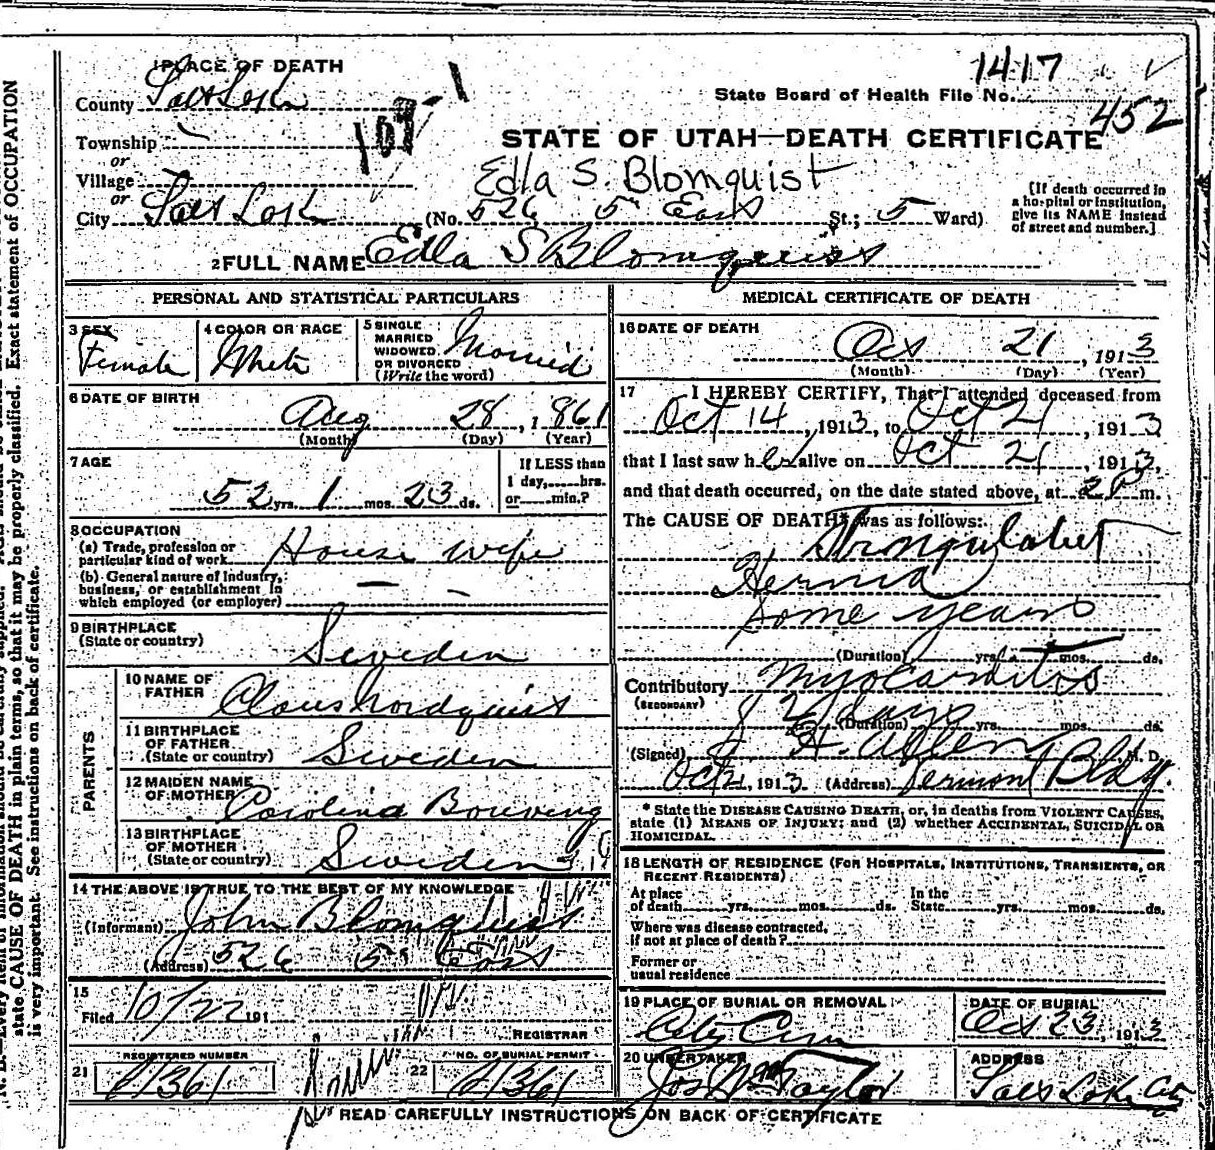 1417
State Board of Health File No.
452
1 PLACE OF DEATH
County Salt Lake
Township
or
Village
or
City Salt Lake (No. 526 5" East St.; 5 Ward)
STATE OF UTAH—DEATH CERTIFICATE
Edla S. Blomquist
[If death occurred in
a hospital or institution,
give its NAME instead
of street and number.]
2 FULL NAME Edla S Blomquist
PERSONAL AND STATISTICAL PARTICULARS
3 SEX
Female
4 COLOR OR RACE
White
5 SINGLE
MARRIED
WIDOWED
OR DIVORCED
(Write the word)
Married
6 DATE OF BIRTH
Aug 28, 1861
(Month) (Day) (Year)
7 AGE
52 yrs. 1 mos. 23 ds.
If LESS than
1 day,......hrs.
or......min.?
8 OCCUPATION
(a) Trade, profession or
particular kind of work House wife
(b) General nature of Industry,
business, or establishment in
which employed (or employer)
9 BIRTHPLACE
(State or country)
Sweden
PARENTS
10 NAME OF
FATHER
Claus Nordquist
11 BIRTHPLACE
OF FATHER
(State or country)
Sweden
12 MAIDEN NAME
OF MOTHER
Carolina Bouving
13 BIRTHPLACE
OF MOTHER
(State or country)
Sweden
14 THE ABOVE IS TRUE TO THE BEST OF MY KNOWLEDGE
(Informant) John Blomquist
(Address) 526 5" East
15
Filed 10/22 191
REGISTRAR
REGISTERED NUMBER
21
NO. OF BURIAL PERMIT
22
MEDICAL CERTIFICATE OF DEATH
16 DATE OF DEATH
Oct 21, 1913
(Month) (Day) (Year)
17 I HEREBY CERTIFY, That I attended deceased from
Oct 14, 1913, to Oct 21, 1913
that I last saw her alive on Oct 21, 1913,
and that death occurred, on the date stated above, at 2P m.
The CAUSE OF DEATH* was as follows:
Strangulated
Hernia
Some years
(Duration) yrs. mos. ds.
Contributory Myocarditis
(SECONDARY)
2 days (Duration) yrs. mos. ds.
(Signed) J. H. Allen M. D.
Oct 21, 1913 (Address) Vermont Bldg.
* State the DISEASE CAUSING DEATH, or, in deaths from VIOLENT CAUSES,
state (1) MEANS OF INJURY; and (2) whether ACCIDENTAL, SUICIDAL OR
HOMICIDAL.
18 LENGTH OF RESIDENCE (FOR HOSPITALS, INSTITUTIONS, TRANSIENTS, OR
RECENT RESIDENTS)
At place
of death......yrs......mos......ds.
In the
State......yrs......mos......ds.
Where was disease contracted,
if not at place of death?
Former or
usual residence
19 PLACE OF BURIAL OR REMOVAL
City Cem
DATE OF BURIAL
Oct 23, 1913
20 UNDERTAKER
Jos Wm Taylor
ADDRESS
Salt Lake City
READ CAREFULLY INSTRUCTIONS ON BACK OF CERTIFICATE
state CAUSE OF DEATH in plain terms, so that it may be properly classified. Exact statement of OCCUPATION
is very important. See instructions on back of certificate.